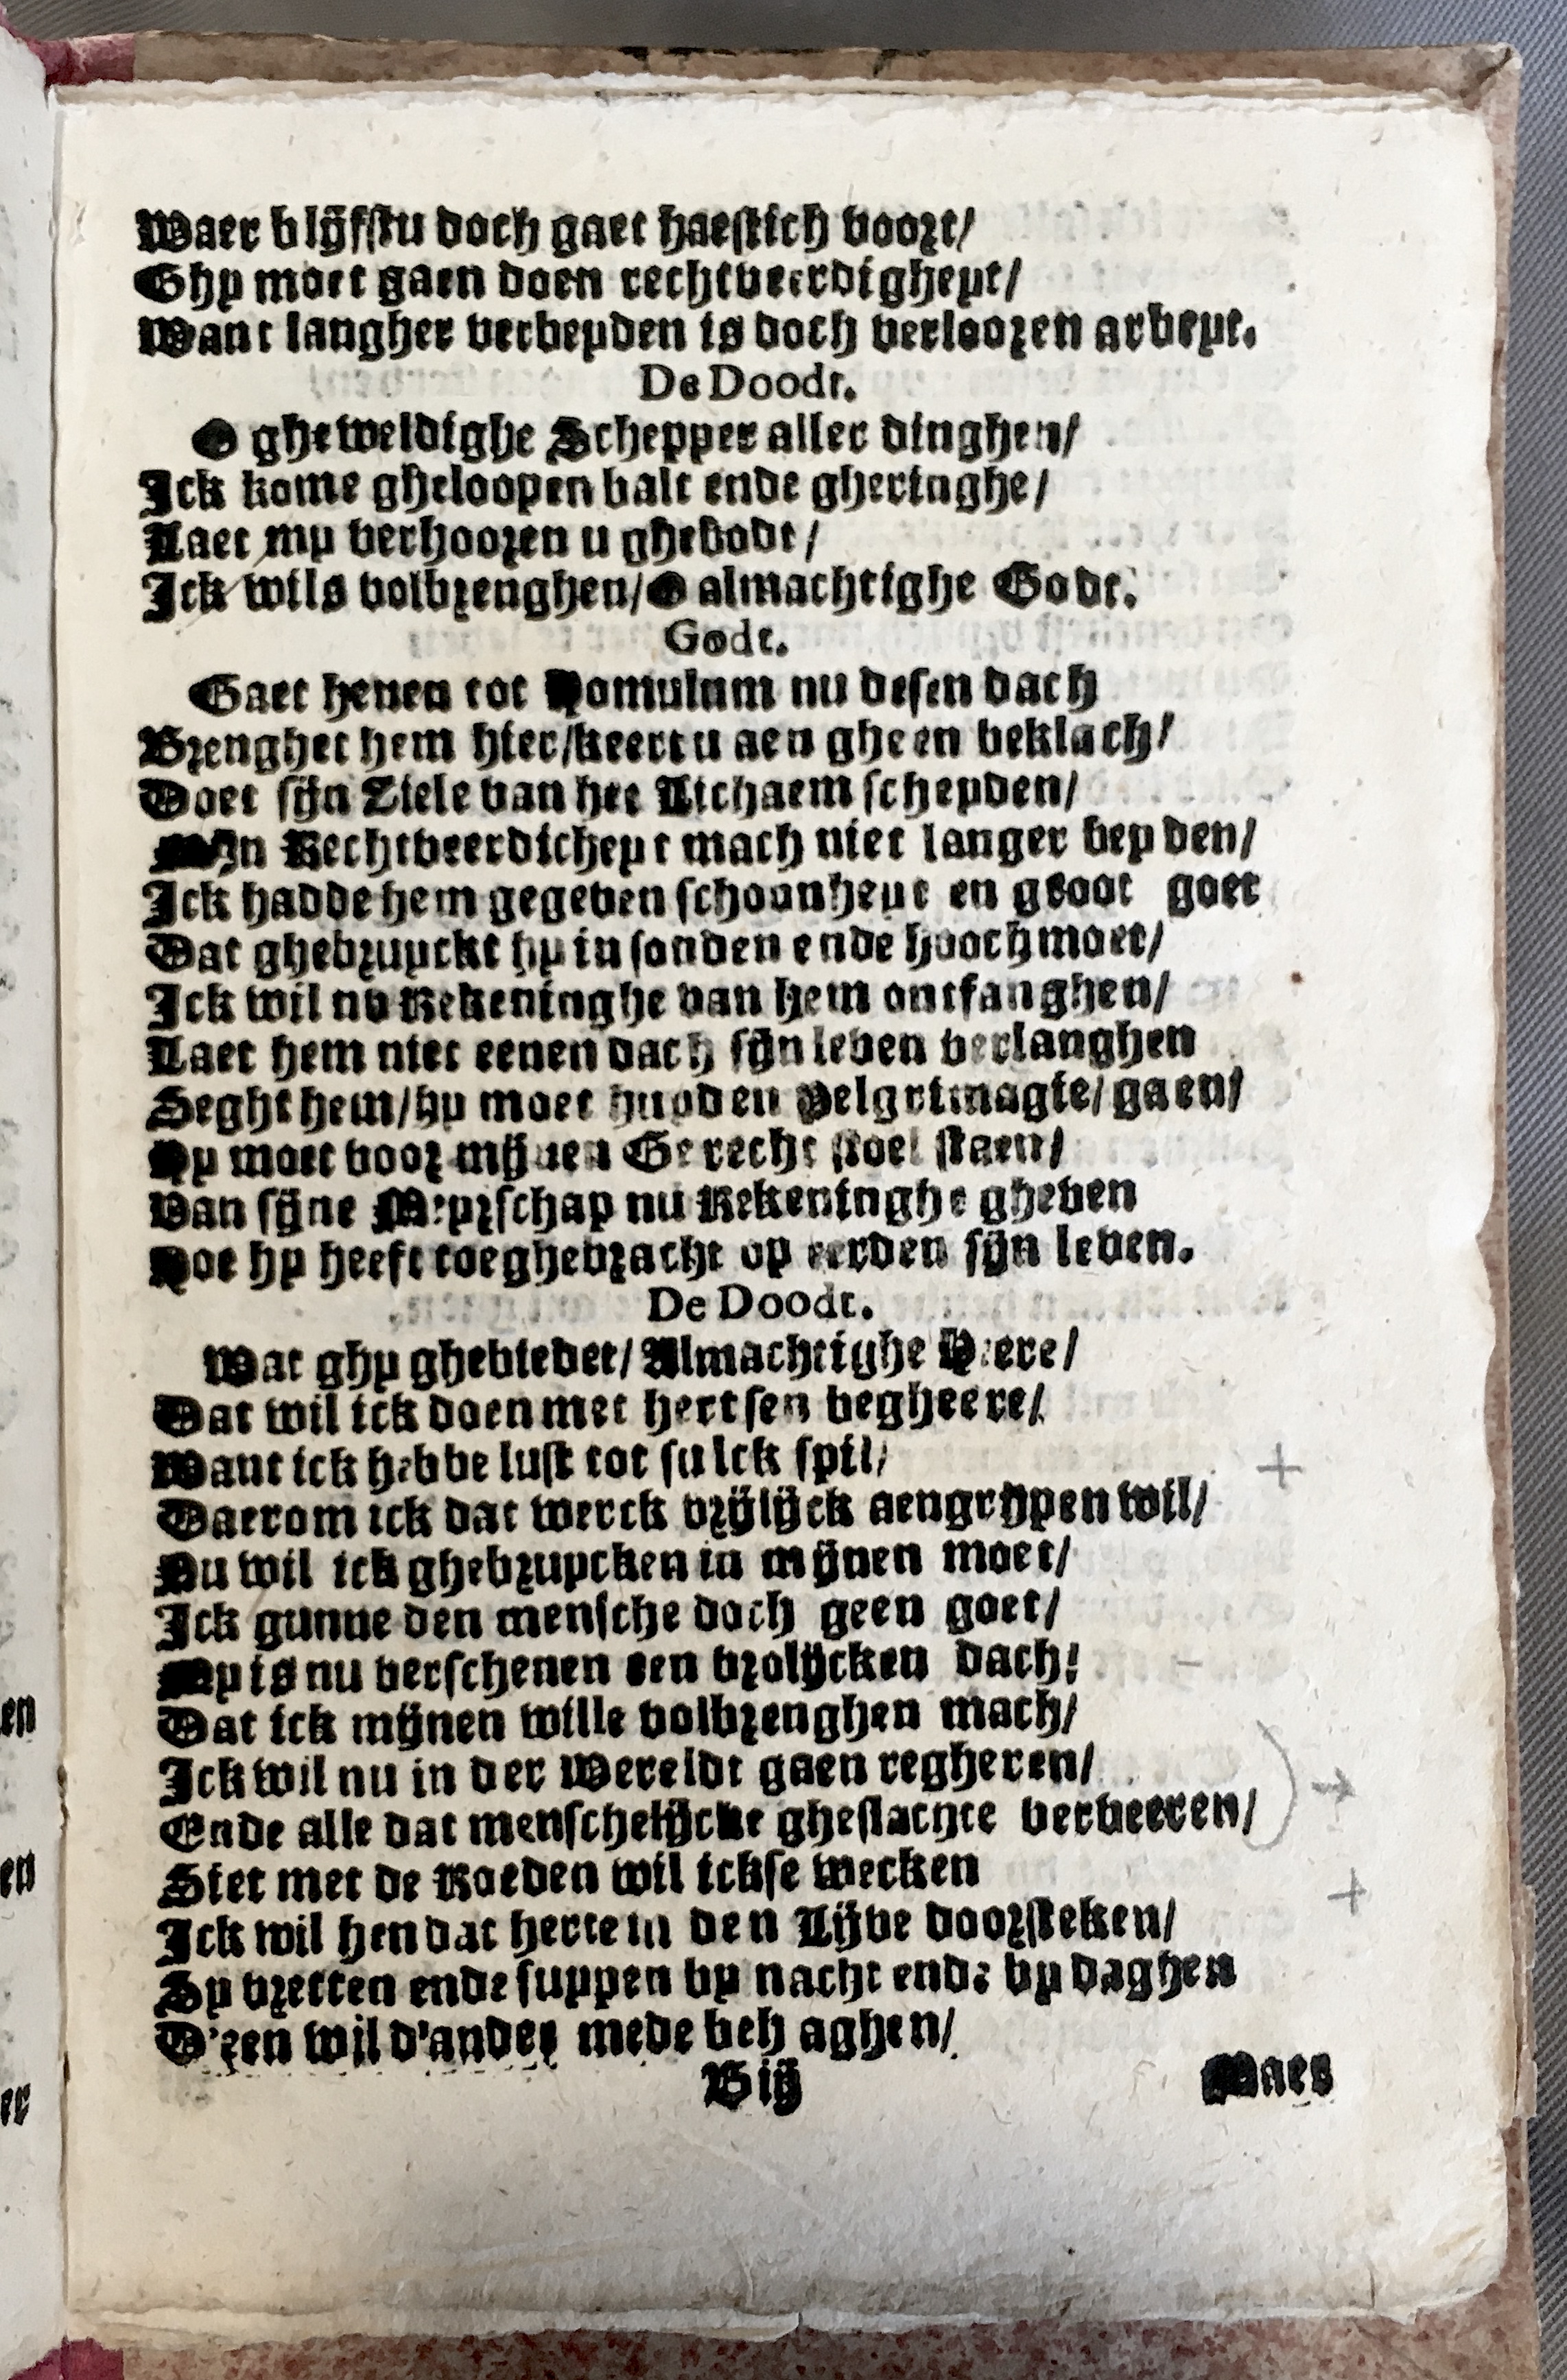 Waer blijfstu doch gaet haestich voort/
Ghy moet gaen doen rechtveerdigheyt/
Want langher verbeyden is doch verloozen arbeyt.
De Doodt.
O gheweldighe Schepper aller dinghen/
Ick kome gheloopen balt ende gheringhe/
Laet my verhooren u ghebodt/
Ick wils volbrenghen/O almachtighe Godt.
Godt.
Gaet henen tot Homulum nu desen dach
Brenghet hem hier/keert u aen gheen beklach/
Doet sijn Ziele van het Lichaem scheyden/
Mijn Rechtveerdicheyt mach niet langer beyden/
Ick hadde hem gegeven schoonheyt en groot goet
Dat ghebruyckt hy in sonden ende hoochmoet/
Ick wil nu Rekeninghe van hem ontfanghen/
Laet hem niet eenen dach sijn leven verlanghen
Seght hem/hy moet huyden Pelgrimagie/gaen/
Hy moet voor mijnen Gerecht stoel staen/
Van sijne Meyrschap nu Rekeninghe gheven
Hoe hy heeft toeghebracht op eerden sijn leven.
De Doodt.
Wat ghy ghebiedet/Almachtighe Heere/
Dat wil ick doen met hertsen begheere/
Want ick hebbe lust tot sulck spil/
Daerom ick dat werck vrijlijck aengrijpen wil/
Nu wil ick ghebruycken in mijnen moet/
Ick gunne den mensche doch geen goet/
My is nu verschenen een vrolijcken dach/
Dat ick mijnen wille volbrenghen mach/
Ick wil nu in der Wereldt gaen regheren/
Ende alle dat menschelijcke gheslachte verveeren/
Siet met de Roeden wil ickse wecken
Ick wil hen dat herte in den Lijve doorsteken/
Sy vretten ende suppen by nacht ende by daghen
D'een wil d'ander mede behaghen/
Bij Maer
en
en
er